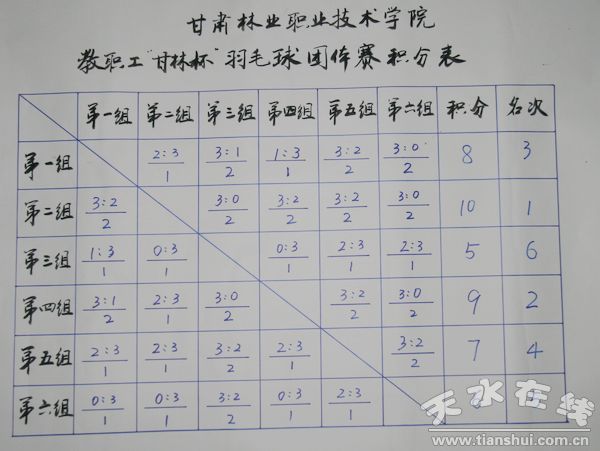 甘肃林业职业技术学院
教职工"甘林杯"羽毛球团体赛积分表
第一组 第二组 第三组 第四组 第五组 第六组 积分 名次
第一组 2:3/1 3:1/2 1:3/1 3:2/2 3:0/2 8 3
第二组 3:2/2 3:0/2 3:2/2 3:2/2 3:0/2 10 1
第三组 1:3/1 0:3/1 0:3/1 2:3/1 2:3/1 5 6
第四组 3:1/2 2:3/1 3:0/2 3:2/2 3:0/2 9 2
第五组 2:3/1 2:3/1 3:2/2 2:3/1 3:2/2 7 4
第六组 0:3/1 0:3/1 3:2/2 0:3/1 2:3/1
天水在线
www.tianshui.com.cn